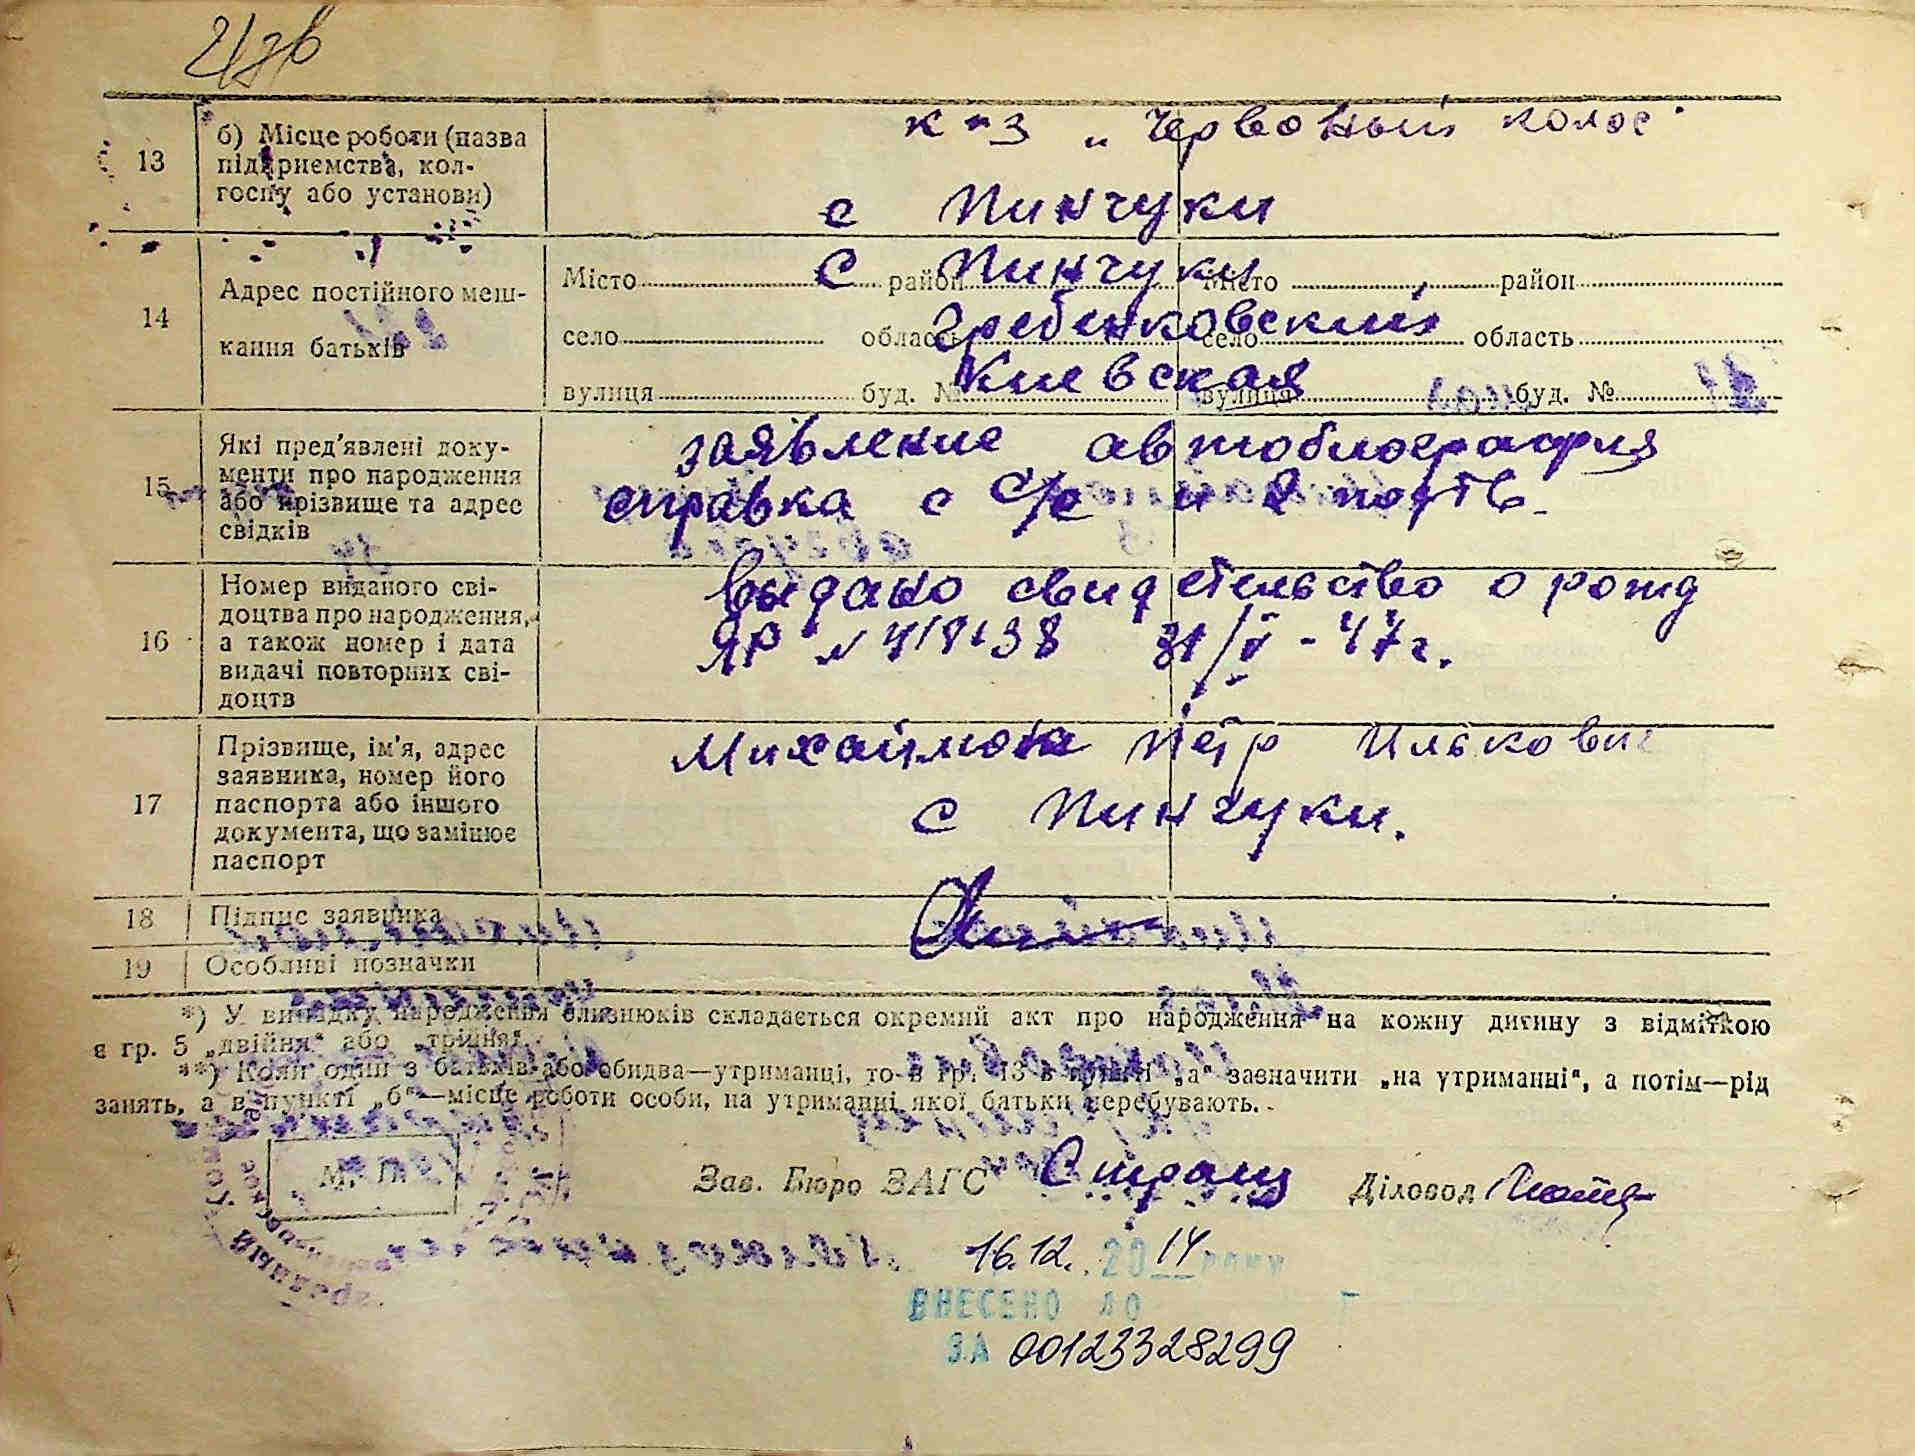 21зв
13
б) Місце роботи (назва
підприємства, кол-
госпу або установи)
к-з „Червоный колос"
с Пинчуки
14
Адрес постійного меш-
кання батьків
Місто район Місто район
село область село область
вулиця буд. № вулиця буд. №
с Пинчуки
Гребенковский
Киевская
15
Які пред'явлені доку-
менти про народження
або прізвище та адрес
свідків
заявление автобиография
справка с с/с и 2 подтв.
16
Номер виданого сві-
доцтва про народження,
а також номер і дата
видачі повторних сві-
доцтв
Выдано свидетельство о рожд
ЯР № 31/V - 47 г.
17
Прізвище, ім'я, адрес
заявника, номер його
паспорта або іншого
документа, що замінює
паспорт
Петр Илькович
с Пинчуки.
18
Підпис заявника
19
Особливі позначки
*) У випадку народження близнюків складається окремий акт про народження на кожну дитину з відміткою
в гр. 5 „двійня" або „трійня".
**) Коли один з батьків або обидва—утриманці, то в гр. 13 в пункті „а" зазначити „на утриманні", а потім—рід
занять, а в пункті „б"—місце роботи особи, на утриманні якої батьки перебувають.
М. П.
Зав. Бюро ЗАГС Діловод
16.12. 2014 року
ВНЕСЕНО ДО Г
ЗА 00123328299